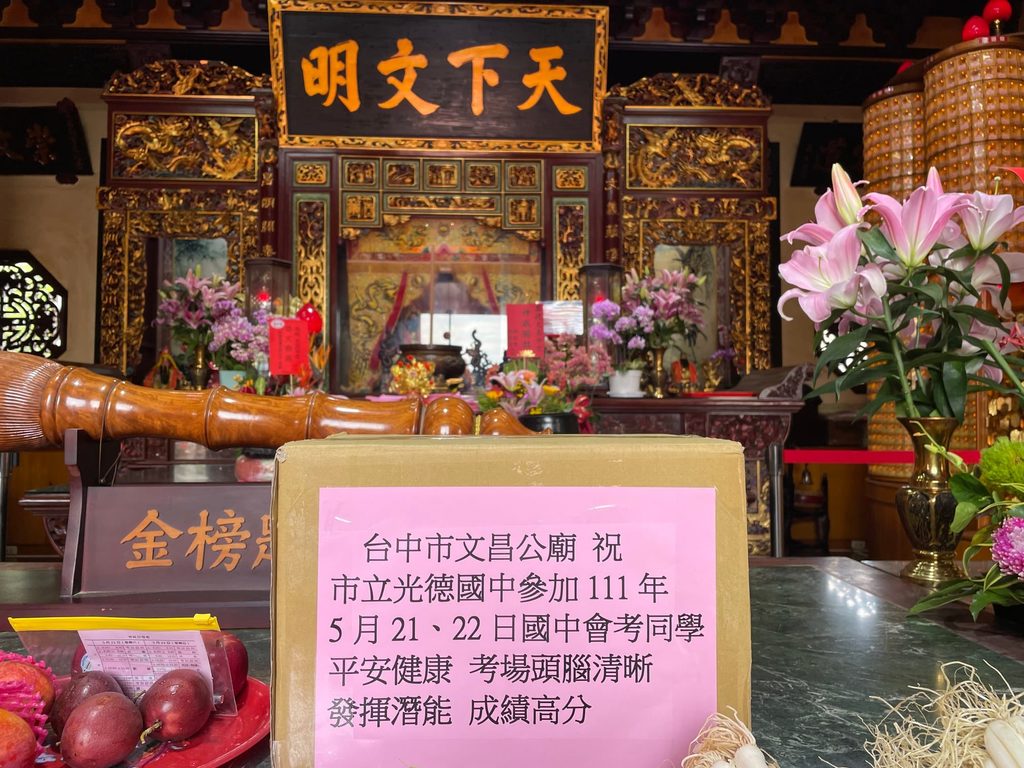 天下文明
金榜
台中市文昌公廟 祝
市立光德國中參加 111 年
5 月 21、22 日國中會考同學
平安健康 考場頭腦清晰
發揮潛能 成績高分